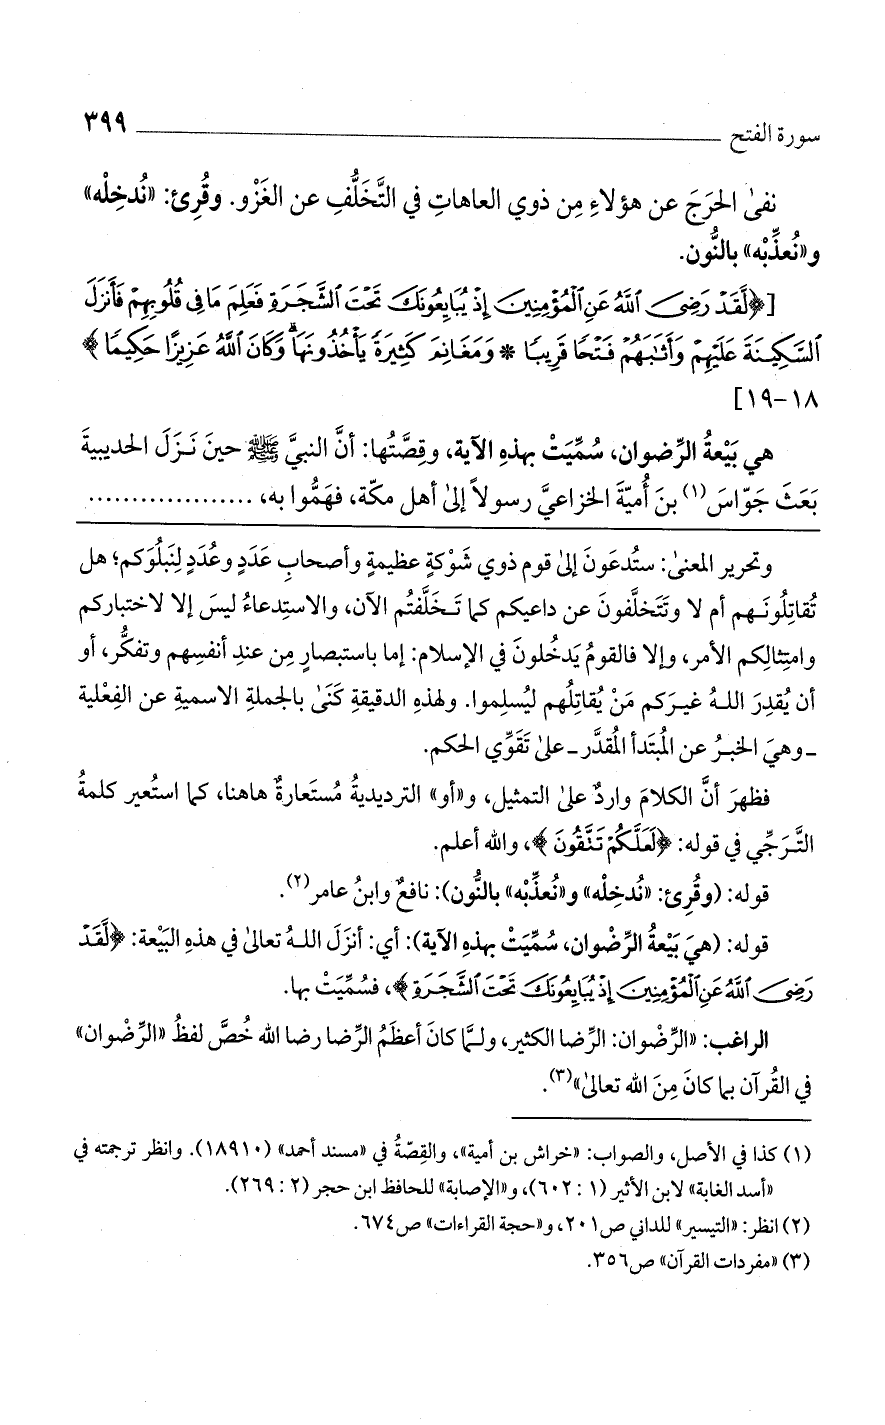 سورة الفتح ٣٩٩
نفىٰ الحَرَجَ عن هؤلاءِ مِن ذوي العاهاتِ في التَّخَلُّفِ عن الغَزْوِ. وقُرِئ: «نُدخِلْه»
و«نُعذِّبْه» بالنُّون.
[﴿لَّقَدْ رَضِىَ ٱللَّهُ عَنِ ٱلْمُؤْمِنِينَ إِذْ يُبَايِعُونَكَ تَحْتَ ٱلشَّجَرَةِ فَعَلِمَ مَا فِى قُلُوبِهِمْ فَأَنزَلَ
ٱلسَّكِينَةَ عَلَيْهِمْ وَأَثَٰبَهُمْ فَتْحًا قَرِيبًا * وَمَغَانِمَ كَثِيرَةً يَأْخُذُونَهَا ۗ وَكَانَ ٱللَّهُ عَزِيزًا حَكِيمًا﴾
١٨-١٩]
هي بَيْعةُ الرِّضوان، سُمِّيَتْ بهذهِ الآية، وقِصَّتُها: أنَّ النبيَّ ﷺ حينَ نَـزَلَ الحديبيةَ
بَعَثَ جَوّاسَ(١) بنَ أُميّةَ الخزاعيَّ رسولاً إلىٰ أهل مكّة، فهَمُّوا به، ...................
وتحرير المعنىٰ: ستُدعَونَ إلىٰ قوم ذوي شَوْكةٍ عظيمةٍ وأصحابِ عَدَدٍ وعُدَدٍ لِنَبلُوَكم؛ هل
تُقاتِلُونَـهم أم لا وتَتَخلَّفونَ عن داعيكم كما تَـخلَّفتُم الآن، والاستِدعاءُ ليسَ إلا لاختباركم
وامتِثالِكم الأمر، وإلا فالقومُ يَدخُلونَ في الإسلام: إما باستبصارٍ مِن عندِ أنفسِهم وتفكُّر، أو
أن يُقدِرَ اللـهُ غيـرَكم مَنْ يُقاتِلُهم ليُسلِموا. ولهذهِ الدقيقةِ كَنَىٰ بالجملةِ الاسميةِ عن الفِعْلية
ـ وهيَ الخبـرُ عن المُبتَدأ المُقدَّر ـ علىٰ تَقَوِّي الحكم.
فظهرَ أنَّ الكلامَ واردٌ علىٰ التمثيل، و«أو» الترديديةُ مُستَعارةٌ هاهنا، كما استُعير كلمةُ
التَّـرَجِّي في قوله: ﴿لَعَلَّكُمْ تَتَّقُونَ﴾، والله أعلم.
قوله: (وقُرِئ: «نُدخِلْه» و«نُعذِّبْه» بالنُّون): نافعٌ وابنُ عامر(٢).
قوله: (هيَ بَيْعةُ الرِّضْوان، سُمِّيَتْ بهذهِ الآية): أي: أنزَلَ اللـهُ تعالىٰ في هذهِ البَيْعة: ﴿لَّقَدْ
رَضِىَ ٱللَّهُ عَنِ ٱلْمُؤْمِنِينَ إِذْ يُبَايِعُونَكَ تَحْتَ ٱلشَّجَرَةِ﴾، فسُمِّيَتْ بها.
الراغب: «الرِّضْوان: الرِّضا الكثير، ولـمَّا كانَ أعظَمُ الرِّضا رضا الله خُصَّ لفظُ «الرِّضْوان»
في القُرآن بما كانَ مِنَ الله تعالىٰ»(٣).
(١) كذا في الأصل، والصواب: «خراش بن أمية»، والقِصّةُ في «مسند أحمد» (١٨٩١٠). وانظر ترجمته في
«أسد الغابة» لابن الأثير (١: ٦٠٢)، و«الإصابة» للحافظ ابن حجر (٢: ٢٦٩).
(٢) انظر: «التيسير» للداني ص٢٠١، و«حجة القراءات» ص٦٧٤.
(٣) «مفردات القرآن» ص٣٥٦.